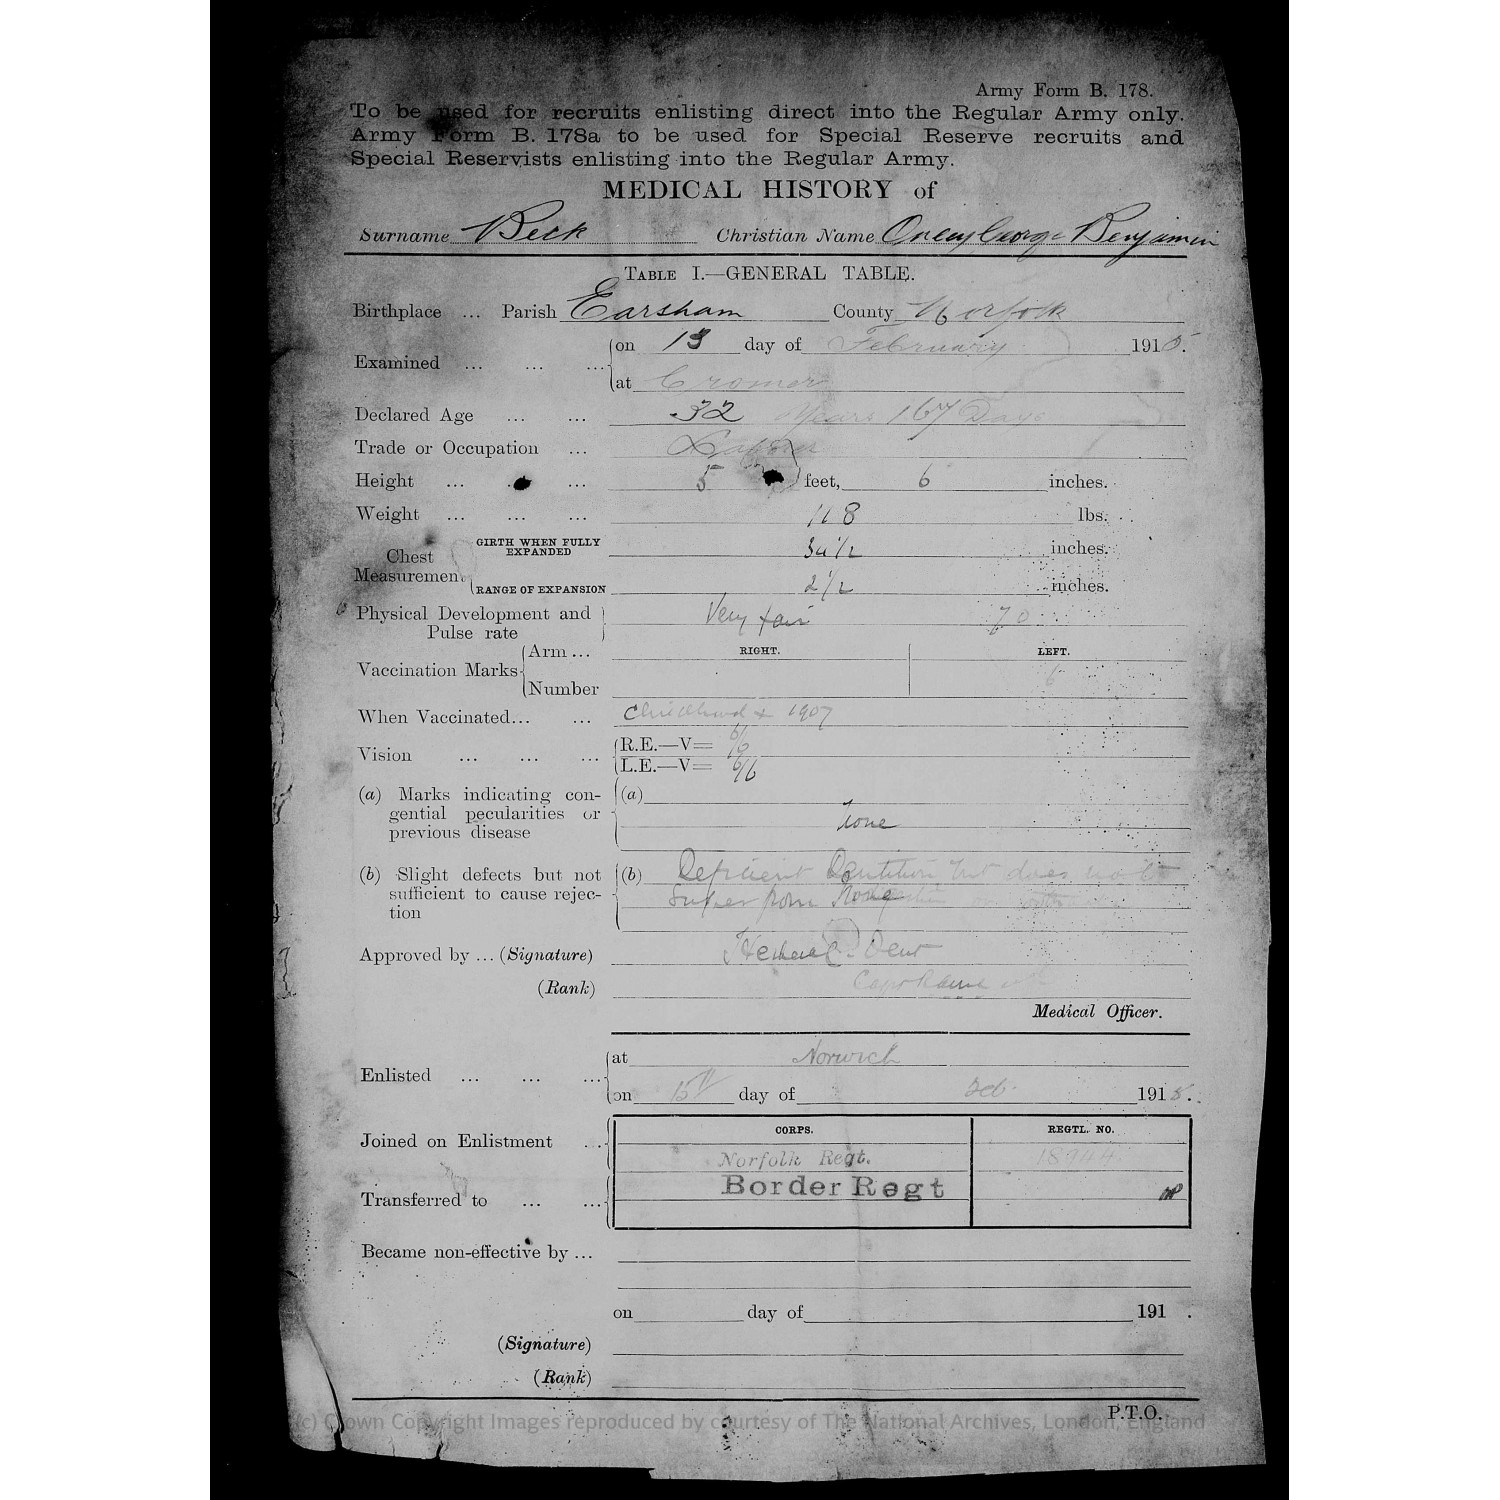 Army Form B. 178.
To be used for recruits enlisting direct into the Regular Army only.
Army Form B. 178a to be used for Special Reserve recruits and
Special Reservists enlisting into the Regular Army.
MEDICAL HISTORY of
Surname Beck Christian Name George Benjamin
TABLE I.—GENERAL TABLE.
Birthplace ... Parish Earsham County Norfolk
Examined ... ... ... on 13 day of February 1915.
at Cromer
Declared Age ... ... 32 Years 167 Days
Trade or Occupation ...
Height ... ... ... 5 feet, 6 inches.
Weight ... ... ... 118 lbs.
Chest Measurement GIRTH WHEN FULLY EXPANDED 34 1/2 inches.
RANGE OF EXPANSION 2 1/2 inches.
Physical Development and Pulse rate Very fair 70
Vaccination Marks Arm ... RIGHT. LEFT.
Number
When Vaccinated... ... Childhood + 1907
Vision ... ... ... R.E.—V= 6/12
L.E.—V= 6/6
(a) Marks indicating con- (a)
gential pecularities or None
previous disease
(b) Slight defects but not (b) Deficient Dentition but does not
sufficient to cause rejec- suffer from
tion
Approved by ... (Signature) Dent
(Rank)
Medical Officer.
Enlisted ... ... ... at Norwich
on 15th day of Feb 1915.
CORPS. REGTL. NO.
Joined on Enlistment ... Norfolk Regt. 18944
Transferred to ... ... Border Regt
Became non-effective by ...
on day of 191 .
(Signature)
(Rank)
P.T.O.
(c) Crown Copyright Images reproduced by courtesy of The National Archives, London, England